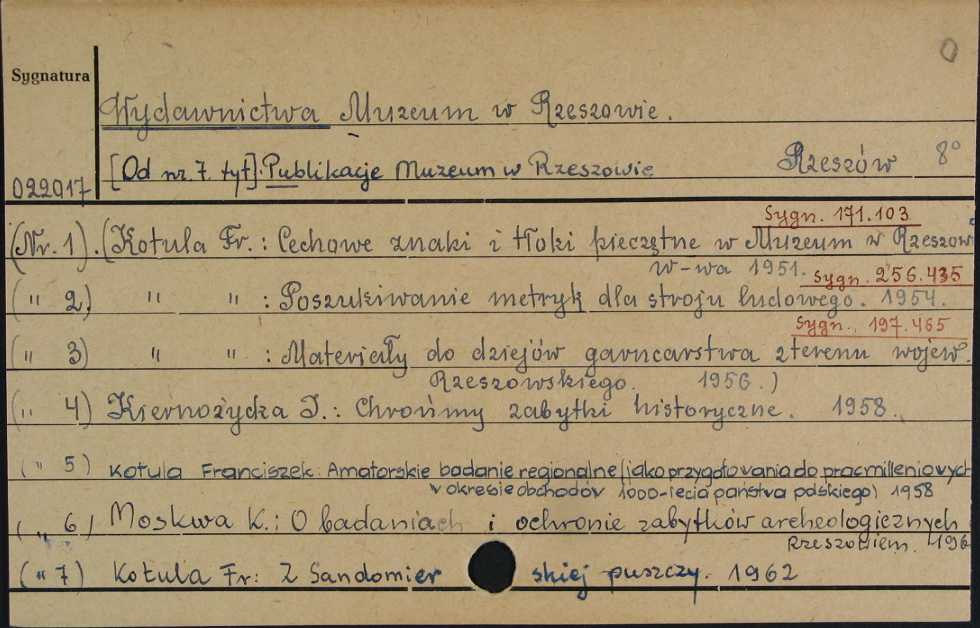 0
Sygnatura
Wydawnictwa Muzeum w Rzeszowie.
[Od nr. 7. tyt]. Publikacje Muzeum w Rzeszowie Rzeszów 8°
022917
Sygn. 171.103
(Nr. 1). (Kotula Fr. : Cechowe znaki i tłoki pieczętne w Muzeum w Rzeszow
W-wa 1951. Sygn. 256.435
( " 2) " " : Poszukiwanie metryk dla stroju ludowego. 1954.
Sygn. 197.465
( " 3) " " : Materiały do dziejów garncarstwa z terenu wojew.
Rzeszowskiego. 1956. )
( " 4) Kiernożycka I. : Chrońmy zabytki historyczne. 1958.
( " 5) Kotula Franciszek: Amatorskie badanie regionalne (jako przygotowania do prac milleniowych
w okresie obchodów 1000-lecia państwa polskiego) 1958
( " 6) Moskwa K. : O badaniach i ochronie zabytków archeologicznych
Rzeszowiem. 196
( " 7) Kotula Fr: Z Sandomierskiej puszczy. 1962